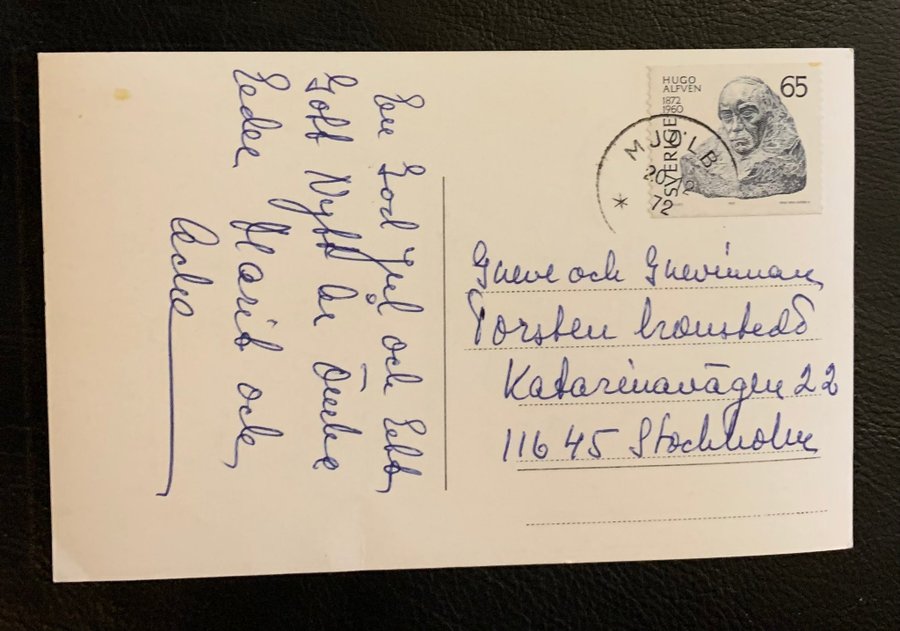 HUGO
ALFVÉN
1872
1960
65
SVERIGE
MJÖLB
20 12
72
En God Jul och Ett
Gott Nytt År Önska
Eder Marit och
Acke
Greve och Grevinnan
Torsten Cronstedt
Katarinavägen 22
116 45 Stockholm